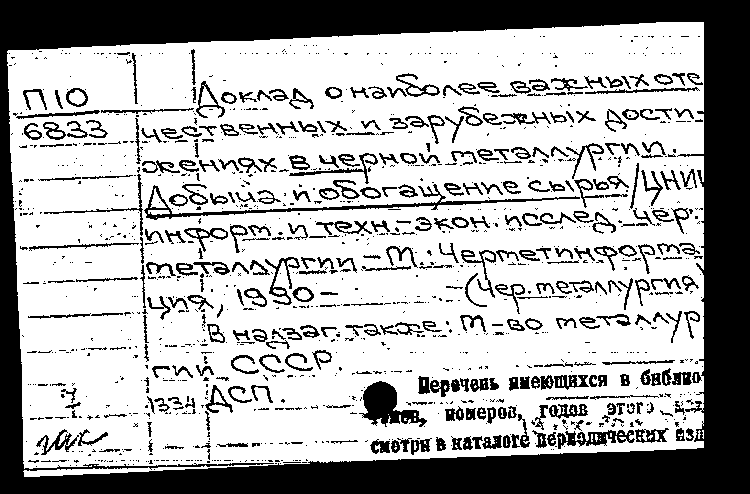 П10
6833
Доклад о наиболее важных оте
чественных и зарубежных дости-
жениях в черной металлургии.
Добыча и обогащение сырья / ЦНИИ
информ. и техн.-экон. исслед. чер.
металлургии. – М.: Черметинформа-
ция, 1990 – – (Чер. металлургия)
В надзаг. также: М-во металлур
гии СССР.
1334 ДСП.
Перечень имеющихся в библио
томов, номеров, годов этого изд
смотри в каталоге периодических изд